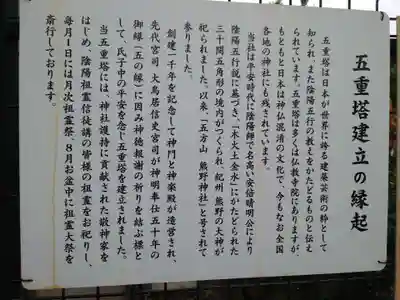 五重塔建立の縁起
五重塔は日本が世界に誇る建築芸術の粋として
知られ、また陰陽五行の教えをかたどるものと伝え
られています。五重塔は多くは仏教寺院にありますが、
もともと日本は神仏混淆の文化で、今もなお全国
各地の神社にも残されています。
当社は平安時代に陰陽師で名高い安倍晴明公により
陰陽五行説に基づき、「木火土金水」にかたどられた
三十間五角形の境内がつくられ、紀州 熊野の大神が
祀られました。以来、「五方山 熊野神社」と号されて
参りました。
創建一千年を記念して神門と神楽殿が造営され、
先代宮司 大鳥居信史宮司が神明奉仕五十年の
御縁（五の縁）に因み神徳報謝の祈りを結ぶ標と
して、氏子中の平安を念じ五重塔を建立されました。
当五重塔には、神社護持に貢献された敬神家を
はじめ、陰陽祖霊信徒講の皆様の祖霊をお祀りし、
毎月1日には月次祖霊祭、8月お盆中に祖霊大祭を
斎行しております。